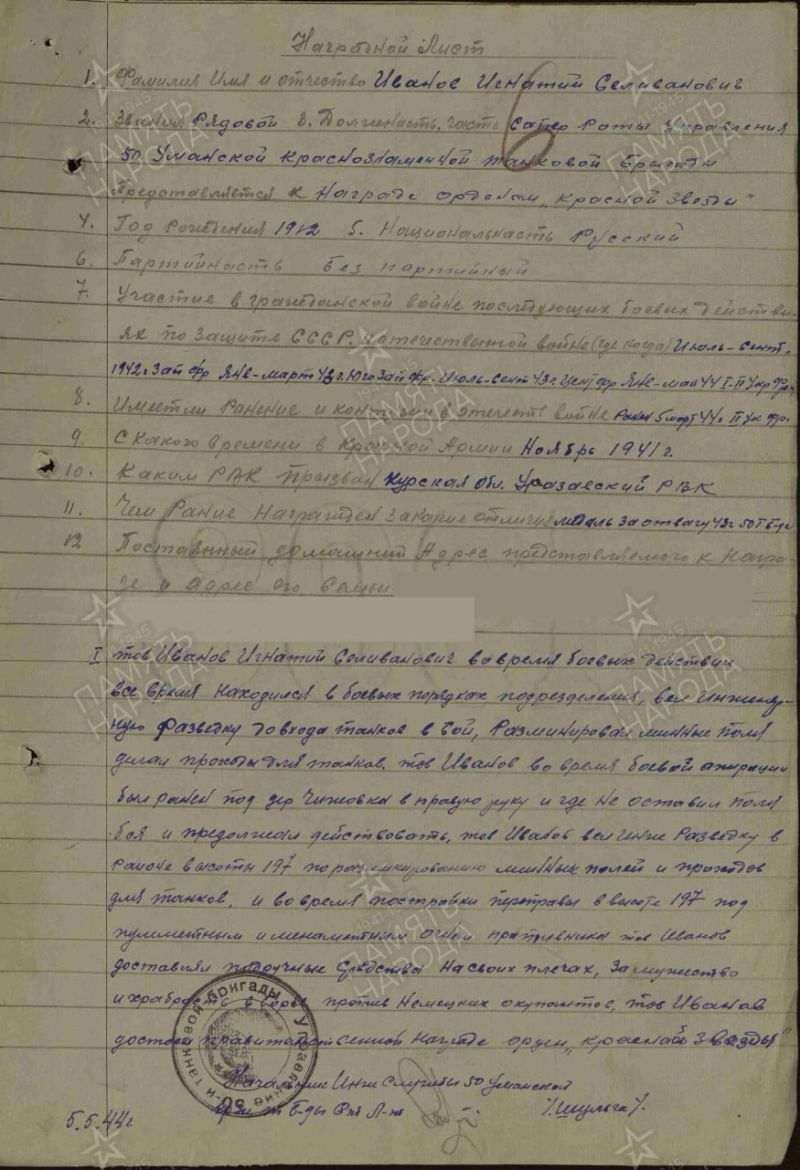 Наградной Лист
1. Фамилия Имя и отчество Иванов Игнатий Селиванович
2. Звание Рядовой 3. Должность, часть Сапер Роты Управления
50 Уманской Краснознаменной танковой Бригады
Представляется к Награде орденом „Красной Звезды"
4. Год Рождения 1912 5. Национальность Русский
6. Партийность Без партийный
7. Участие в гражданской войне последующих боевых действи-
ях по защите СССР и отечественной войне (где когда) Июль-Сент.
1942г Зап Фр Янв-март 43г. Юго Зап Фр. Июль-сент 43г Цент фр Янв-май 44 I-II Укр Фр.
8. Имеет ли Ранение и контузии в отечеств войне Ранен 5 март 44г II Ук фр.
9. С Какого времени в Красной Армии Ноябрь 1941 г.
10. Каким РВК призван Курская обл. Уразаеский РВК
11. Чем Ранее Награжден За какие отличия медаль За отвагу 43г 50 Т Б-г
12 Постаянный домашний Адрес представляемого к Награ-
де и Адрес его Семьи.
I тов Иванов Игнатий Селиванович во время боевых действий
все время находился в боевых порядках подразделения, вел инженер-
ную Разведку до входа танков в бой, Разминировал минные поля
делал проходы для танков. тов Иванов во время боевой апирации
был ранен под дер Чижовка в правую руку и где не оставил поля
боя и продолжал действовать, тов Иванов вел инже Разведку в
Районе высоты 197 по разминированию минных полей и проходов
для танков, и во время постройки переправы в высоте 197 под
пулеметным и минаметным огнем пративника тов Иванов
доставлял подручные средства на своих плечах, За мужество
и храбрость в борьбе против Немецких окупантов, тов Иванов
достоин правительственной Награде орден „Красной Звезды"
Начальник Инж Службы 50 Уманской
Кр зн т Б-ды Ст Л-т /Шульга/.
5.5.44г.
Управление 50-й танковой бригады
ПАМЯТЬ НАРОДА
1941 1945